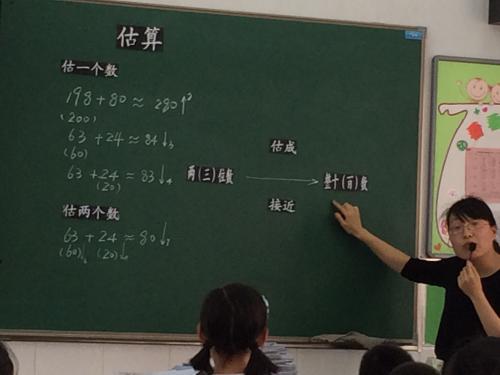 估算
估一个数
198+80≈280↑2
(200)
63+24≈84↓3
(60)
63+24≈83↓4
(20)
估两个数
63+24≈80↓7
(60)↓3 (20)↓4
估成
两(三)位数 → 整十(百)数
接近